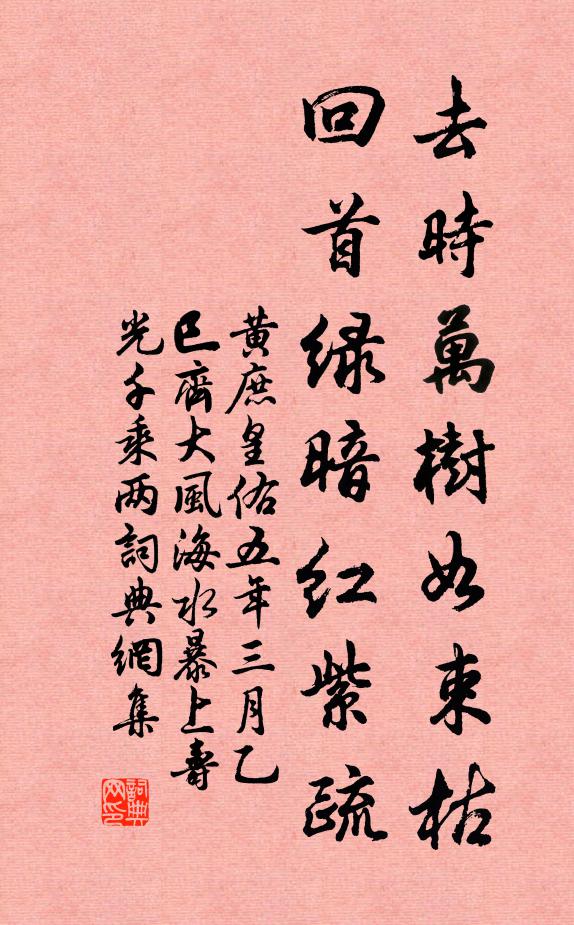 去時萬樹如束枯
回首绿暗红紫疏
黄庶皇佑五年三月乙
巳齊大風海水暴上壽
光千乘两詞典網集
詞典网印